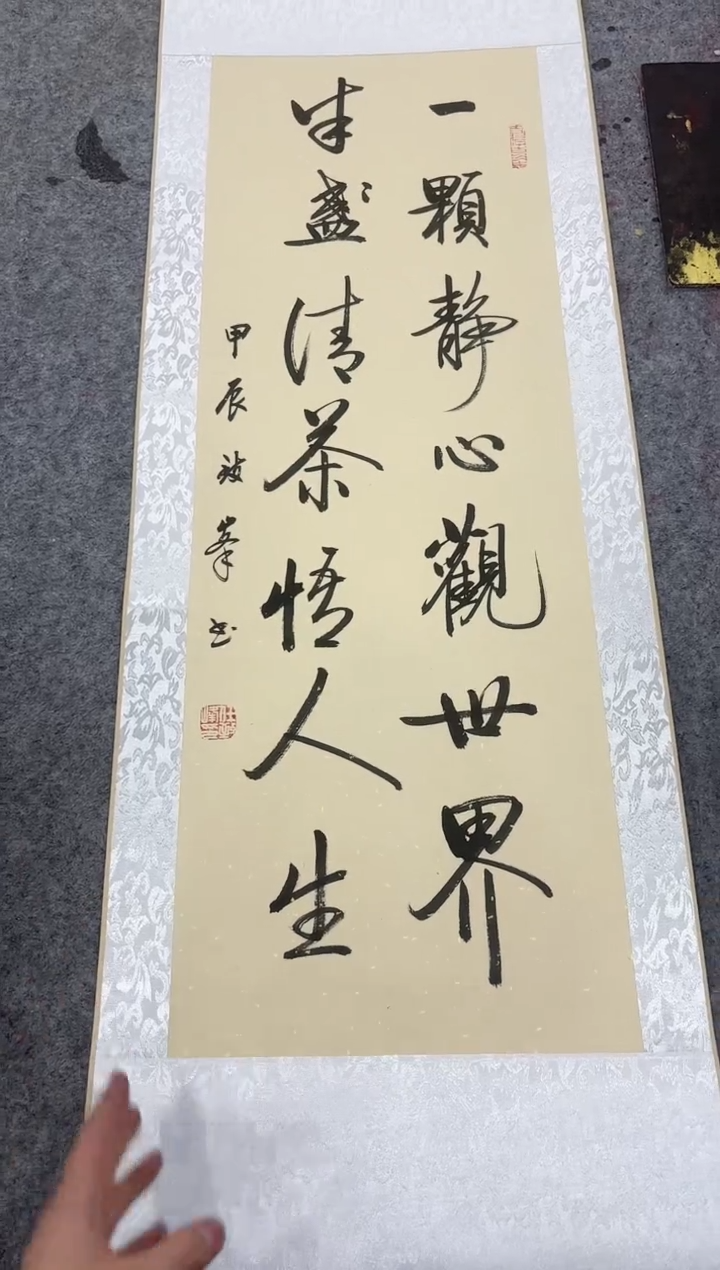 一顆静心觀世界
半盞清茶悟人生
甲辰 峯书